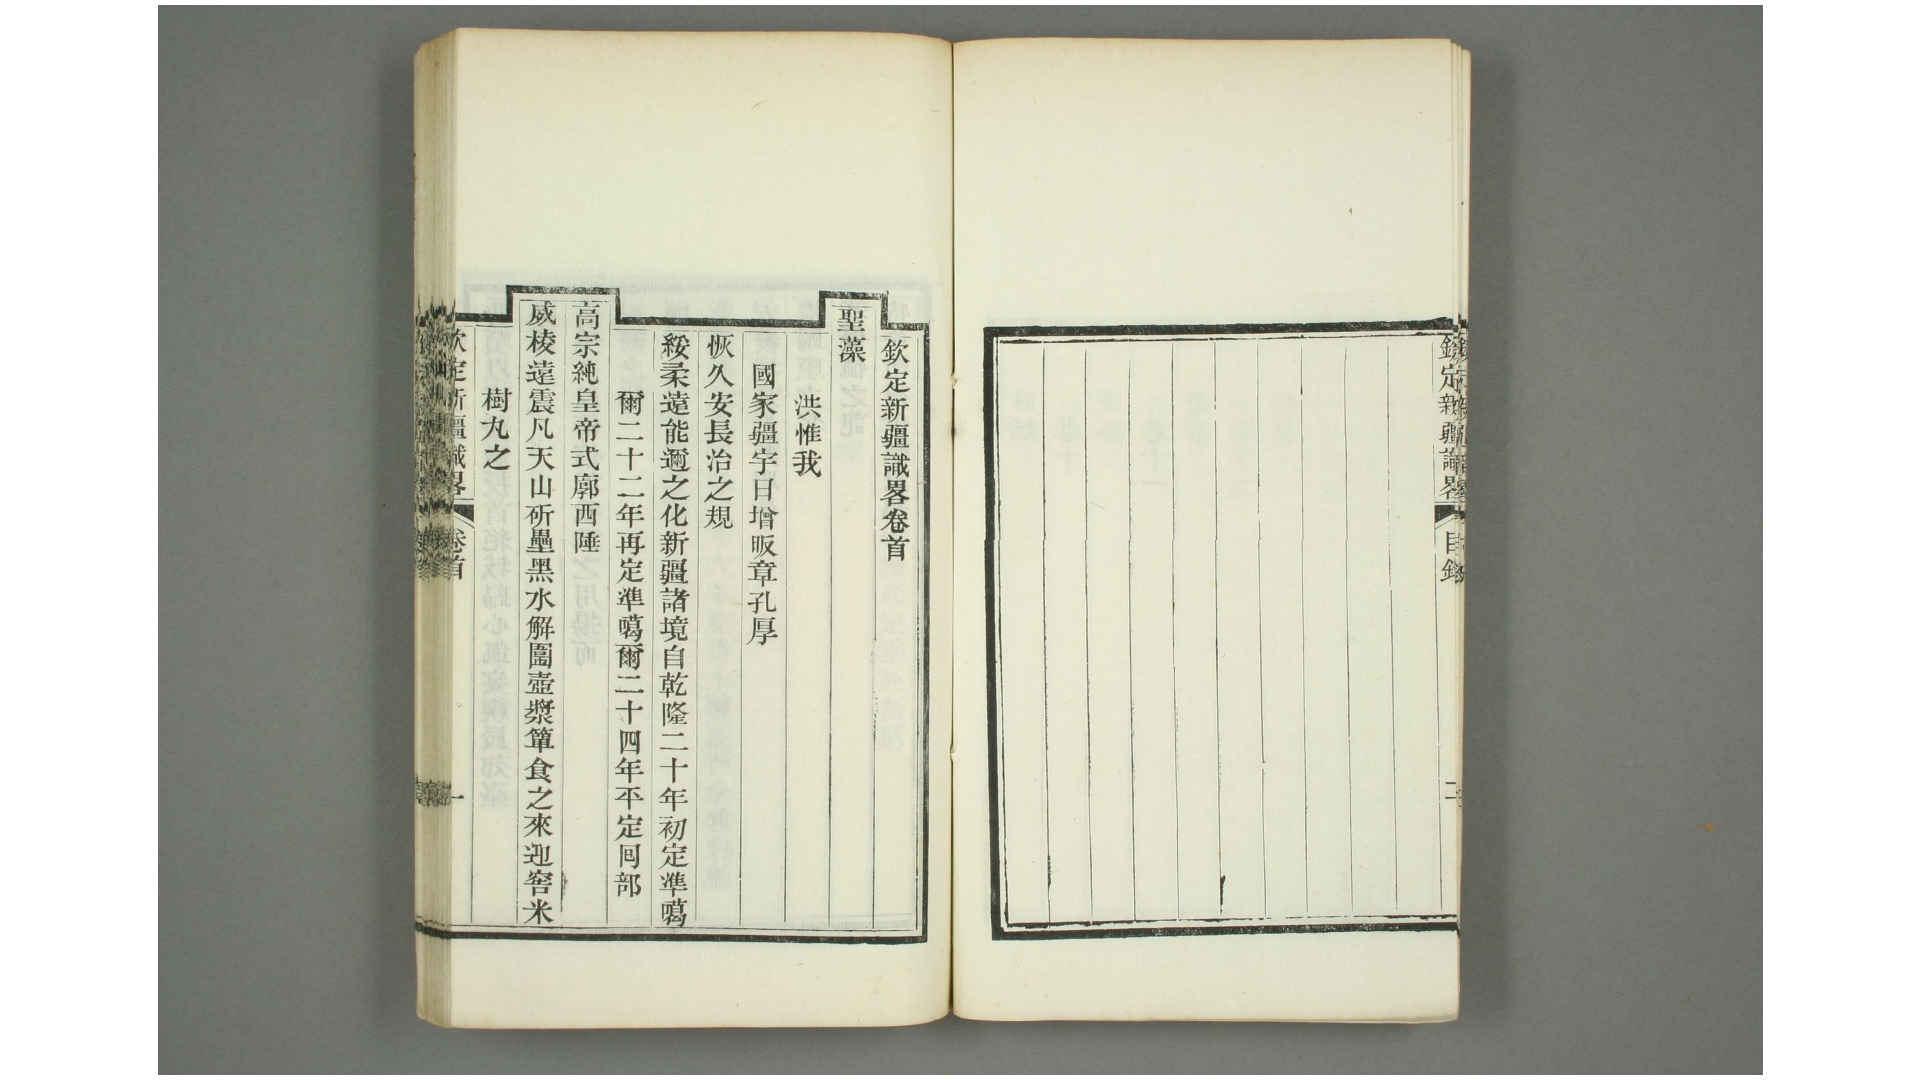 欽定新疆識畧
目錄
二
欽定新疆識畧卷首
聖藻
洪惟我
國家疆宇日增昄章孔厚
恢久安長治之規
綏柔遠能邇之化新疆諸境自乾隆二十年初定準噶
爾二十二年再定準噶爾二十四年平定囘部
高宗純皇帝式廓西陲
威棱遠震凡天山斫壘黑水解圍壺漿簞食之來迎窖米
樹九之
欽定新疆識畧
卷首
一